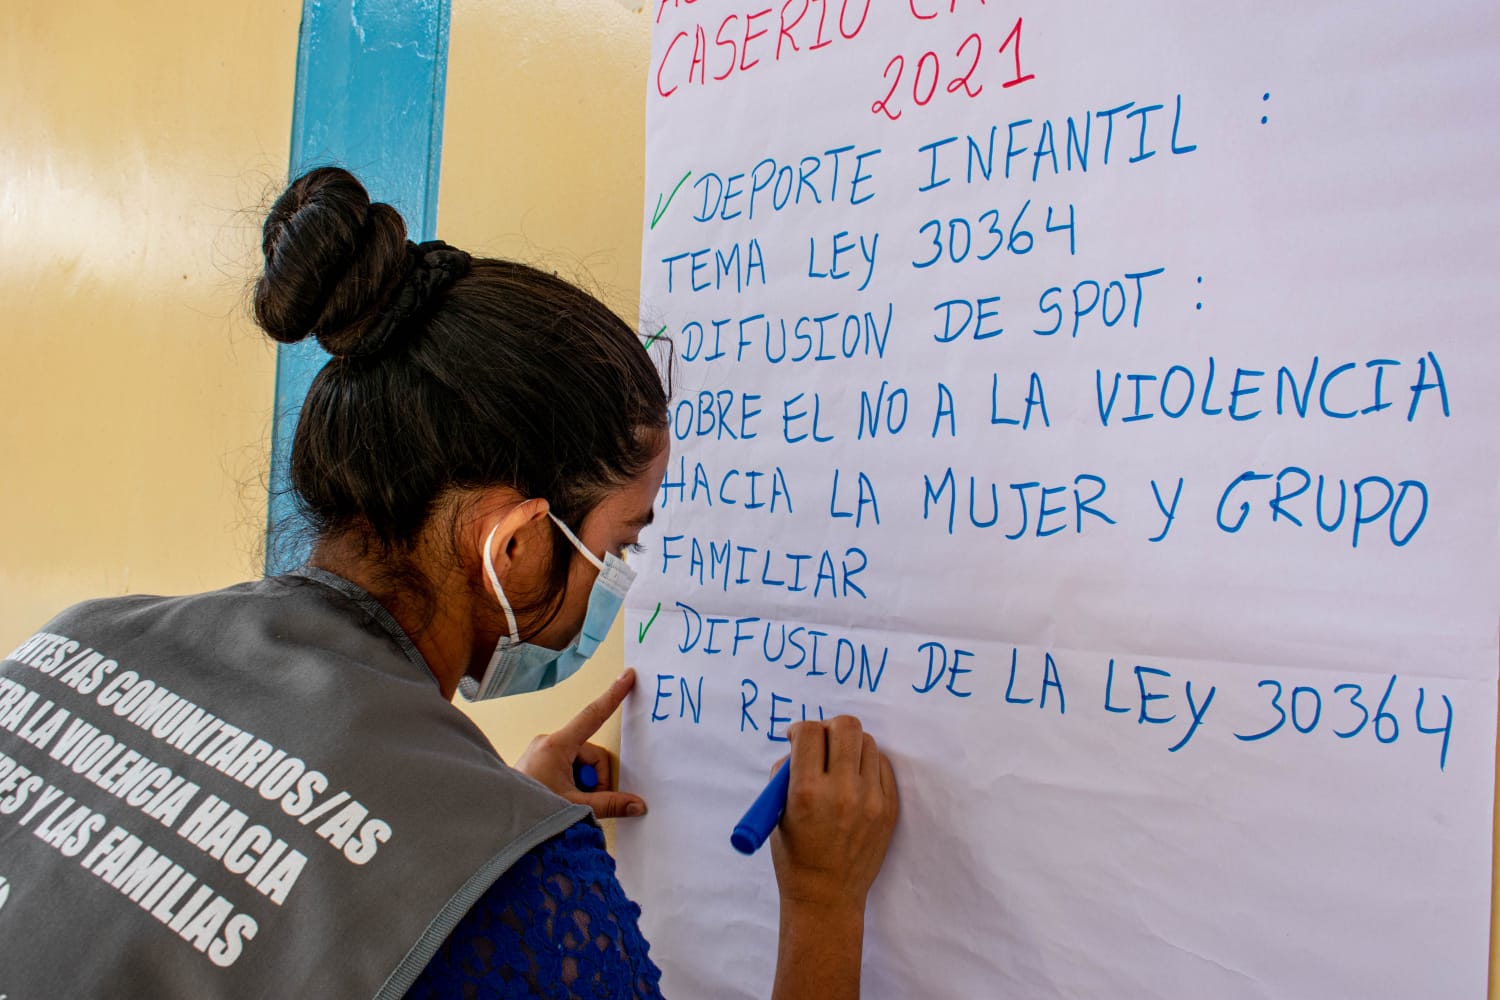 CASERIO
2021
✓ DEPORTE INFANTIL :
TEMA LEY 30364
✓ DIFUSION DE SPOT :
SOBRE EL NO A LA VIOLENCIA
HACIA LA MUJER Y GRUPO
FAMILIAR
✓ DIFUSION DE LA LEY 30364
EN REU
/AS COMUNITARIOS/AS
LA VIOLENCIA HACIA
Y LAS FAMILIAS